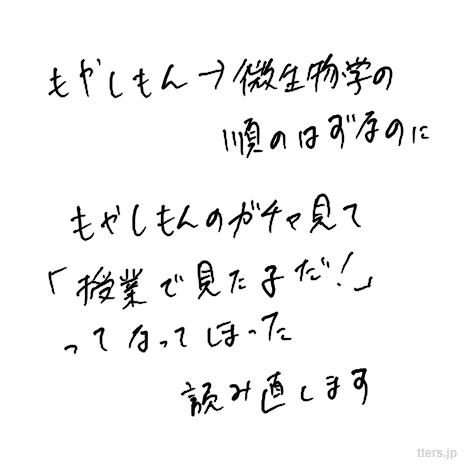 もやしもん→微生物学の
順のはずなのに
もやしもんのガチャ見て
「授業で見た子だ!」
ってなってしまった
読み直します
tters.jp